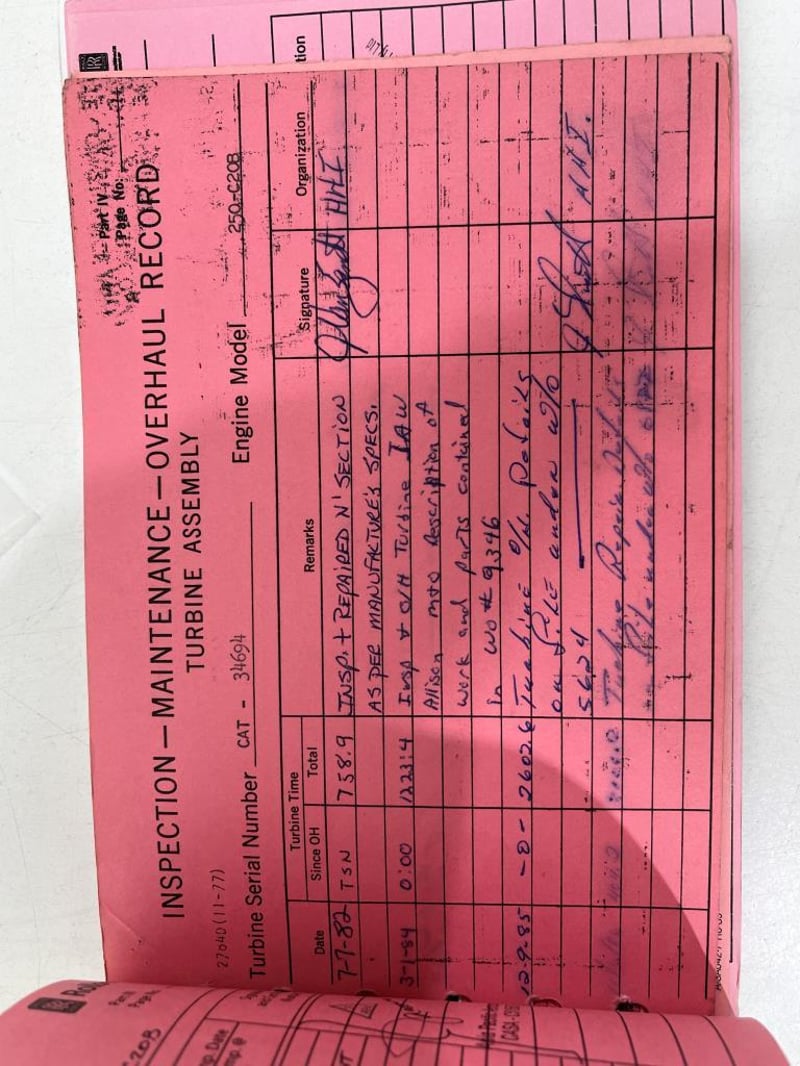 Part IV
Page No.
INSPECTION — MAINTENANCE — OVERHAUL RECORD
TURBINE ASSEMBLY
27040 (11-77)
Turbine Serial Number CAT - 34694 Engine Model 250-C20B
Date Turbine Time Remarks Signature Organization
Since OH Total
7-7-82 TSN 758.9 INSP. + REPAIRED N' SECTION
AS PER MANUFACTURE'S SPECS.
3-1-84 0:00 1223:4 Insp + O/H Turbine IAW
Allison Description of
work and parts contained
in WO # 9346
12-9-85 -0- 2602.6 Turbine O/H. Details
on File under w/o
5624
Turbine Repair
under w/o
tion
C20B